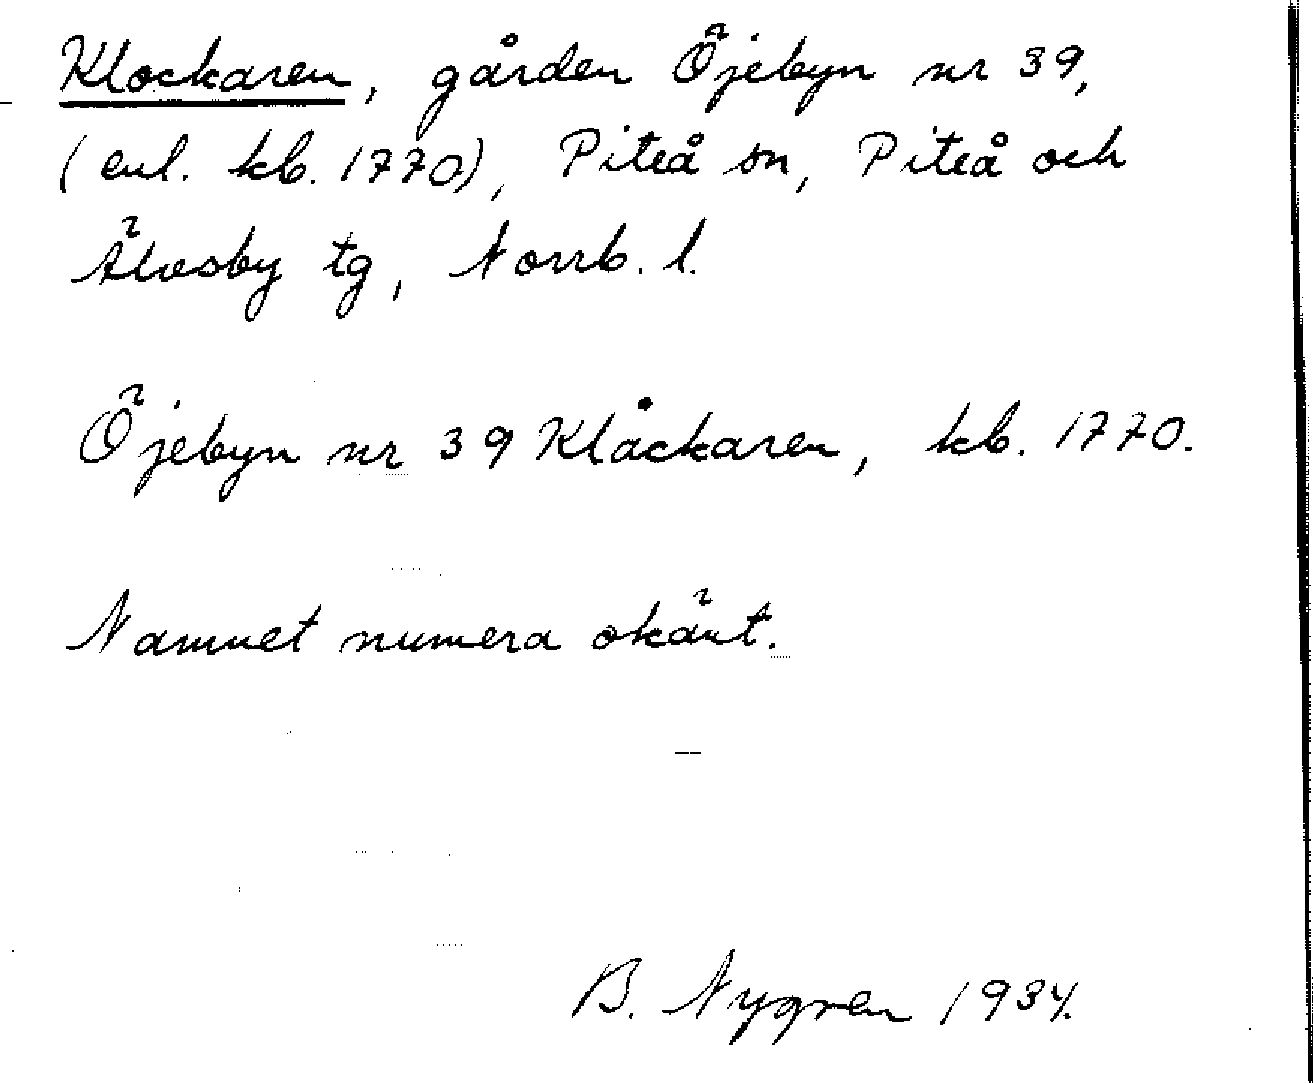 Klockaren, gården Öjebyn nr 39,
(enl. kb. 1770), Piteå sn, Piteå och
Älvsby tg, Norrb. l.
Öjebyn nr 39 Klåckaren, kb. 1770.
Namnet numera okänt.
B. Nygren 1934.